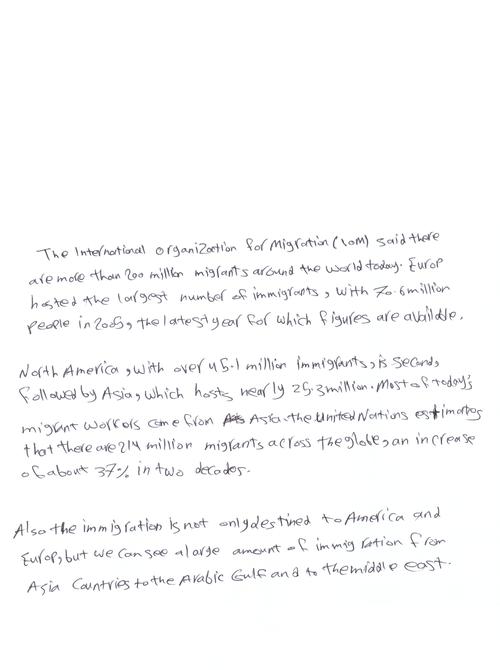 The International Organization for Migration (IOM) said there
are more than 200 million migrants around the world today. Europ
hosted the largest number of immigrants, with 70.6 million
people in 2005, the latest year for which figures are available.
North America, with over 45.1 million immigrants, is second,
followed by Asia, which hosts nearly 25.3 million. Most of today's
migrant workers come from Asia. the United Nations estimates
that there are 214 million migrants across the globe, an increase
of about 37% in two decades.
Also the immigration is not only destined to America and
Europ, but we can see a large amount of immigration from
Asia Countries to the Arabic Gulf and to the middle east.